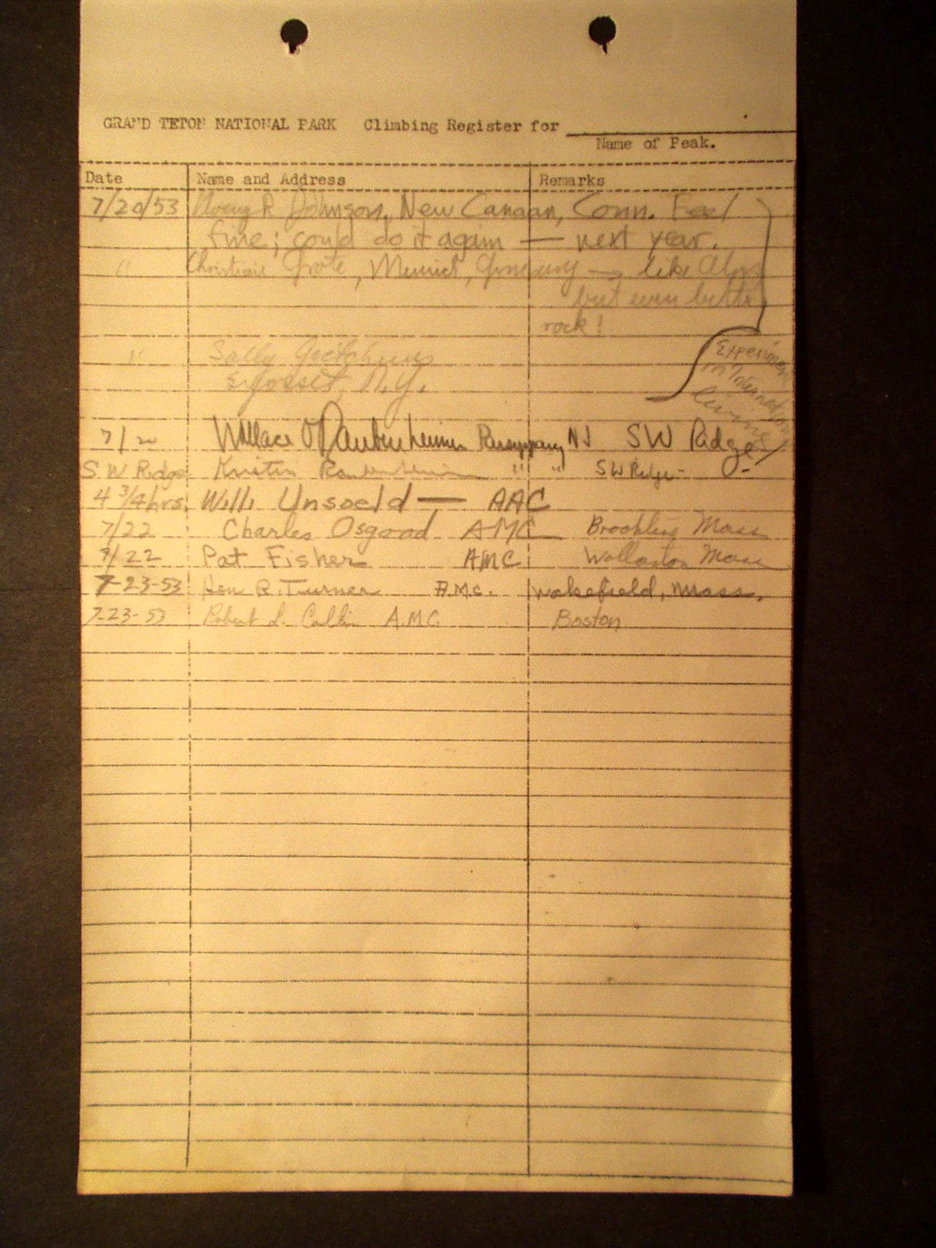 GRAND TETON NATIONAL PARK Climbing Register for
Name of Peak.
Date Name and Address Remarks
7/20/53 R Johnson, New Canaan, Conn. Feel
fine; could do it again — next year.
" Grote, Munich, Germany → like Alps
but even better
rock!
" Sally
N.Y.
Experiment
in International
living
7/20 Wallace NJ SW Ridge
SW Ridge Kristin " " SW Ridge
4 3/4 hrs. Willi Unsoeld — AAC
7/22 Charles Osgood AMC Brookline Mass
7/22 Pat Fisher AMC Wollaston Mass
7-23-53 R. Turner A.M.C. Wakefield, Mass.
7-23-53 Robert A.M.C. Boston